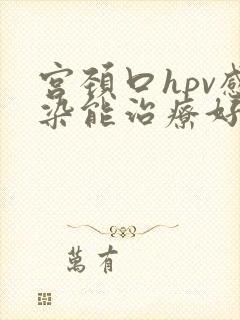 宫颈口hpv感
染能治療好
萬有